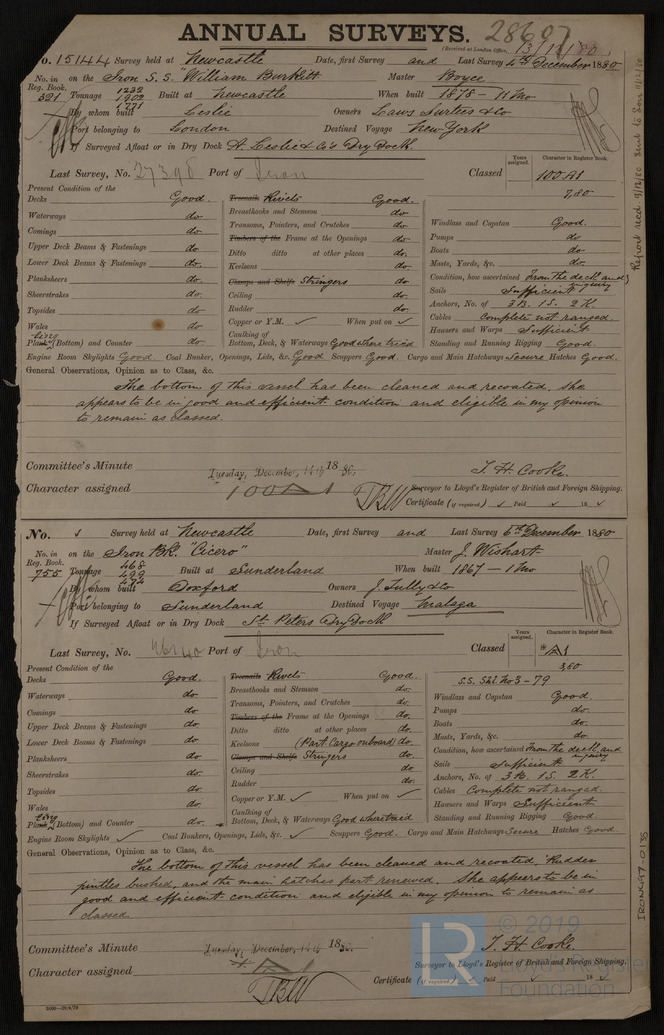 ANNUAL SURVEYS. 28697
(Received at London Office, 13/12/80)
No. 15144 Survey held at Newcastle Date, first Survey and Last Survey 4th December 1880
No. in on the Iron S.S. "William Burkitt" Master Boyce
Reg. Book.
321 Tonnage 1232 1902 1771 Built at Newcastle When built 1878 - 11 Mo
By whom built Leslie Owners Laws Surtees & Co
Port belonging to London Destined Voyage New York
If Surveyed Afloat or in Dry Dock A. Leslie & Co's Dry Dock.
Last Survey, No. 27398 Port of Iron Classed
Years assigned. Character in Register Book.
100 A1
7,80
Present Condition of the
Decks Good.
Waterways do.
Comings do.
Upper Deck Beams & Fastenings do.
Lower Deck Beams & Fastenings do.
Planksheers do.
Sheerstrakes do.
Topsides do.
Wales do.
Plank (Bottom) and Counter do.
Treenails Rivets Good.
Breasthooks and Stemson do.
Transoms, Pointers, and Crutches do.
Timbers of the Frame at the Openings do.
Ditto ditto at other places do.
Keelsons do.
Clamps and Shelfs Stringers do.
Ceiling do.
Rudder do.
Copper or Y.M. ✓ When put on ✓
Caulking of
Bottom, Deck, & Waterways Good where tried
Windlass and Capstan Good.
Pumps do.
Boats do.
Masts, Yards, &c. do.
Condition, how ascertained From the deck and
inquiry
Sails Sufficient
Anchors, No. of 3 B. 1 S. 2 K.
Cables Complete not ranged
Hausers and Warps Sufficient
Standing and Running Rigging Good.
Engine Room Skylights Good. Coal Bunker, Openings, Lids, &c. Good Scuppers Good. Cargo and Main Hatchways Secure Hatches Good.
General Observations, Opinion as to Class, &c.
The bottom of this vessel has been cleaned and recoated, she
appears to be in good and efficient condition and eligible in my opinion
to remain as classed.
Committee's Minute Tuesday, December, 14th 1880.
Character assigned 100 A1
T. H. Cooke.
Surveyor to Lloyd's Register of British and Foreign Shipping.
Certificate (if required) ✓ Paid ✓ 18 ✓
No. Survey held at Newcastle Date, first Survey and Last Survey 6th December 1880
No. in on the Iron Bk. "Cicero" Master J. Wishart
Reg. Book.
755 Tonnage 468 499 Built at Sunderland When built 1867 - 1 Mo
By whom built Doxford Owners J. Tully & Co
Port belonging to Sunderland Destined Voyage Malaga
If Surveyed Afloat or in Dry Dock St. Peters Dry Dock
Last Survey, No. Port of Iron Classed
Years assigned. Character in Register Book.
A1
3,80
S.S. Shl No 3 - 79
Present Condition of the
Decks Good.
Waterways do.
Comings do.
Upper Deck Beams & Fastenings do.
Lower Deck Beams & Fastenings do.
Planksheers do.
Sheerstrakes do.
Topsides do.
Wales do.
Plank (Bottom) and Counter do.
Treenails Rivets Good.
Breasthooks and Stemson do.
Transoms, Pointers, and Crutches do.
Timbers of the Frame at the Openings do.
Ditto ditto at other places do.
Keelsons (Part Cargo onboard) do.
Clamps and Shelfs Stringers do.
Ceiling do.
Rudder do.
Copper or Y.M. ✓ When put on ✓
Caulking of
Bottom, Deck, & Waterways Good where tried
Windlass and Capstan Good.
Pumps do.
Boats do.
Masts, Yards, &c. do.
Condition, how ascertained From the deck and
inquiry
Sails Sufficient
Anchors, No. of 3 B. 1 S. 2 K.
Cables Complete not ranged.
Hausers and Warps Sufficient
Standing and Running Rigging Good
Engine Room Skylights ✓ Coal Bunkers, Openings, Lids, &c. ✓ Scuppers Good. Cargo and Main Hatchways Secure Hatches Good.
General Observations, Opinion as to Class, &c.
The bottom of this vessel has been cleaned and recoated, Rudder
pintles bushed, and the main hatches part renewed. She appears to be in
good and efficient condition and eligible in my opinion to remain as
classed.
Committee's Minute Tuesday, December, 14th 1880.
Character assigned A1
T. H. Cooke
Surveyor to Lloyd's Register of British and Foreign Shipping.
Certificate (if required) Paid 18
Report recd 9/12/80 Sent to Lon 11/12/80
IRON697-0185
© 2019
Lloyd's Register
Foundation